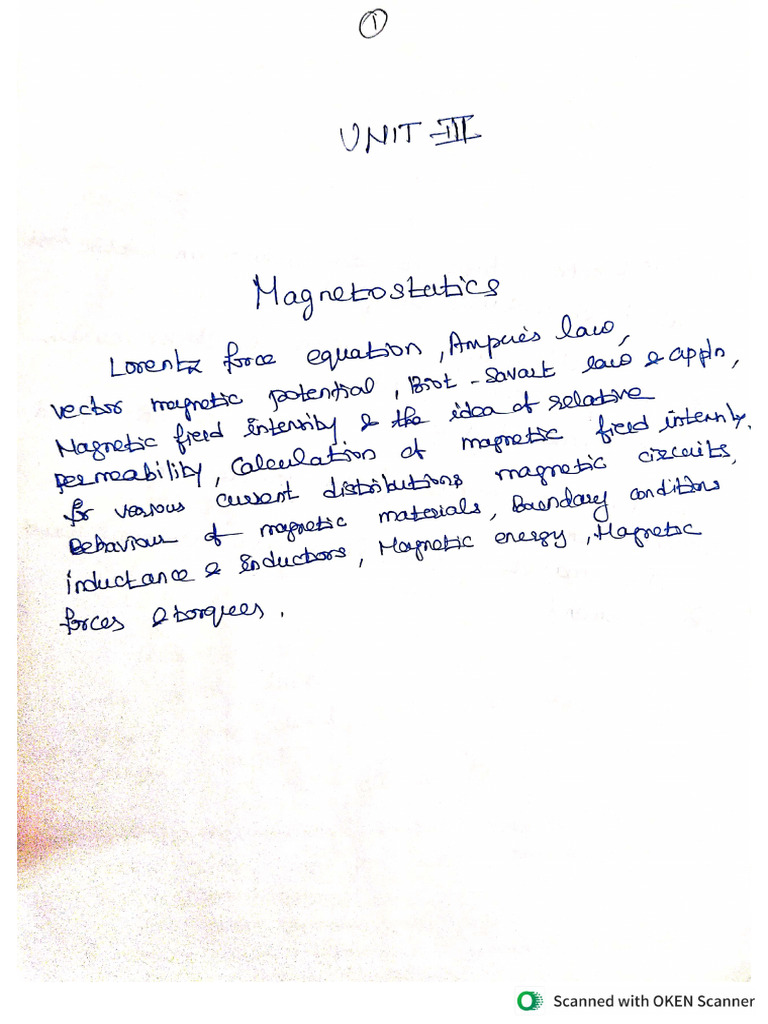 1
UNIT-III
Magnetostatics
Lorentz force equation, Ampere's law,
vector magnetic potential, Biot-Savart law & appln,
Magnetic field intensity & the idea of relative
permeability, Calculation of magnetic field intensity
for various current distributions magnetic circuits,
Behaviour of magnetic materials, Boundary conditions
inductance & inductors, Magnetic energy, Magnetic
forces & torques.
Scanned with OKEN Scanner